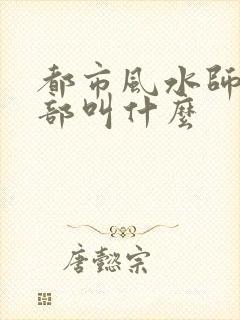 都市風水師
部叫什麼
唐懿宗